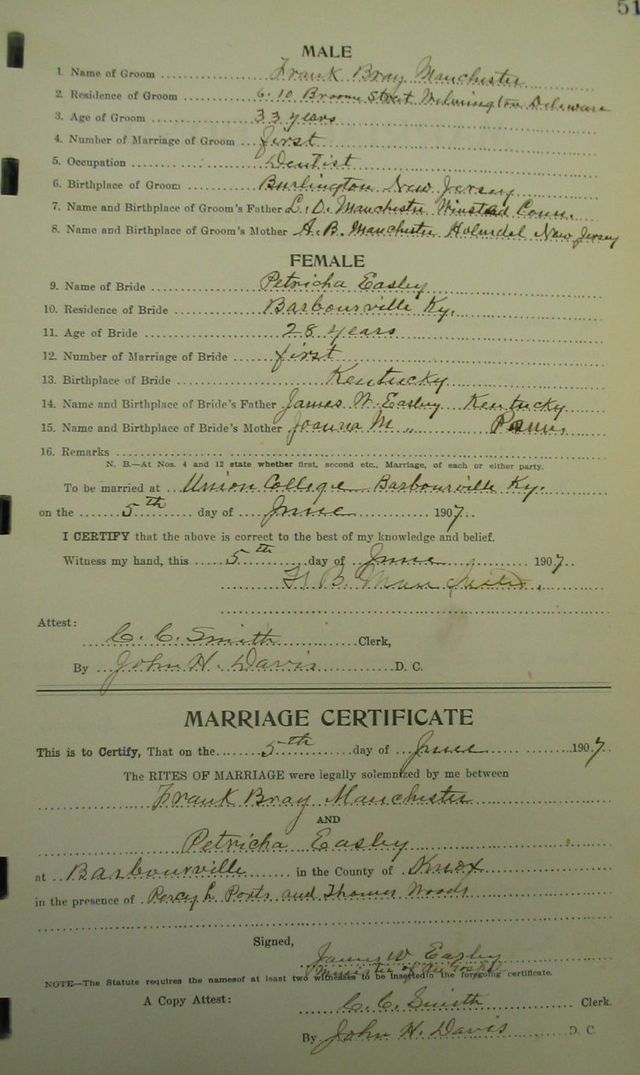 51
MALE
1. Name of Groom Frank Bray Manchester
2. Residence of Groom 610 Broome Street Wilmington Delaware
3. Age of Groom 33 years
4. Number of Marriage of Groom first
5. Occupation Dentist
6. Birthplace of Groom Burlington New Jersey
7. Name and Birthplace of Groom's Father L. D. Manchester Winsted Conn.
8. Name and Birthplace of Groom's Mother A. B. Manchester Holmdel New Jersey
FEMALE
9. Name of Bride Petricha Easley
10. Residence of Bride Barbourville Ky.
11. Age of Bride 28 years
12. Number of Marriage of Bride first
13. Birthplace of Bride Kentucky
14. Name and Birthplace of Bride's Father James W. Easley Kentucky
15. Name and Birthplace of Bride's Mother Joanna M " Penn.
16. Remarks
N. B.—At Nos. 4 and 12 state whether first, second etc., Marriage, of each or either party.
To be married at Union College Barbourville Ky.
on the 5th day of June 1907
I CERTIFY that the above is correct to the best of my knowledge and belief.
Witness my hand, this 5th day of June 1907
F. B. Manchester.
Attest:
C. C. Smith Clerk,
By John H. Davis D. C.
MARRIAGE CERTIFICATE
This is to Certify, That on the 5th day of June 1907
The RITES OF MARRIAGE were legally solemnized by me between
Frank Bray Manchester
AND
Petricha Easley
at Barbourville in the County of Knox
in the presence of Percy L Ports and Thomas Woods
Signed,
James W Easley
Minister of the Gospel
NOTE—The Statute requires the namesof at least two witnesses to be inserted in the foregoing certificate.
A Copy Attest: C. C. Smith Clerk.
By John H. Davis D. C